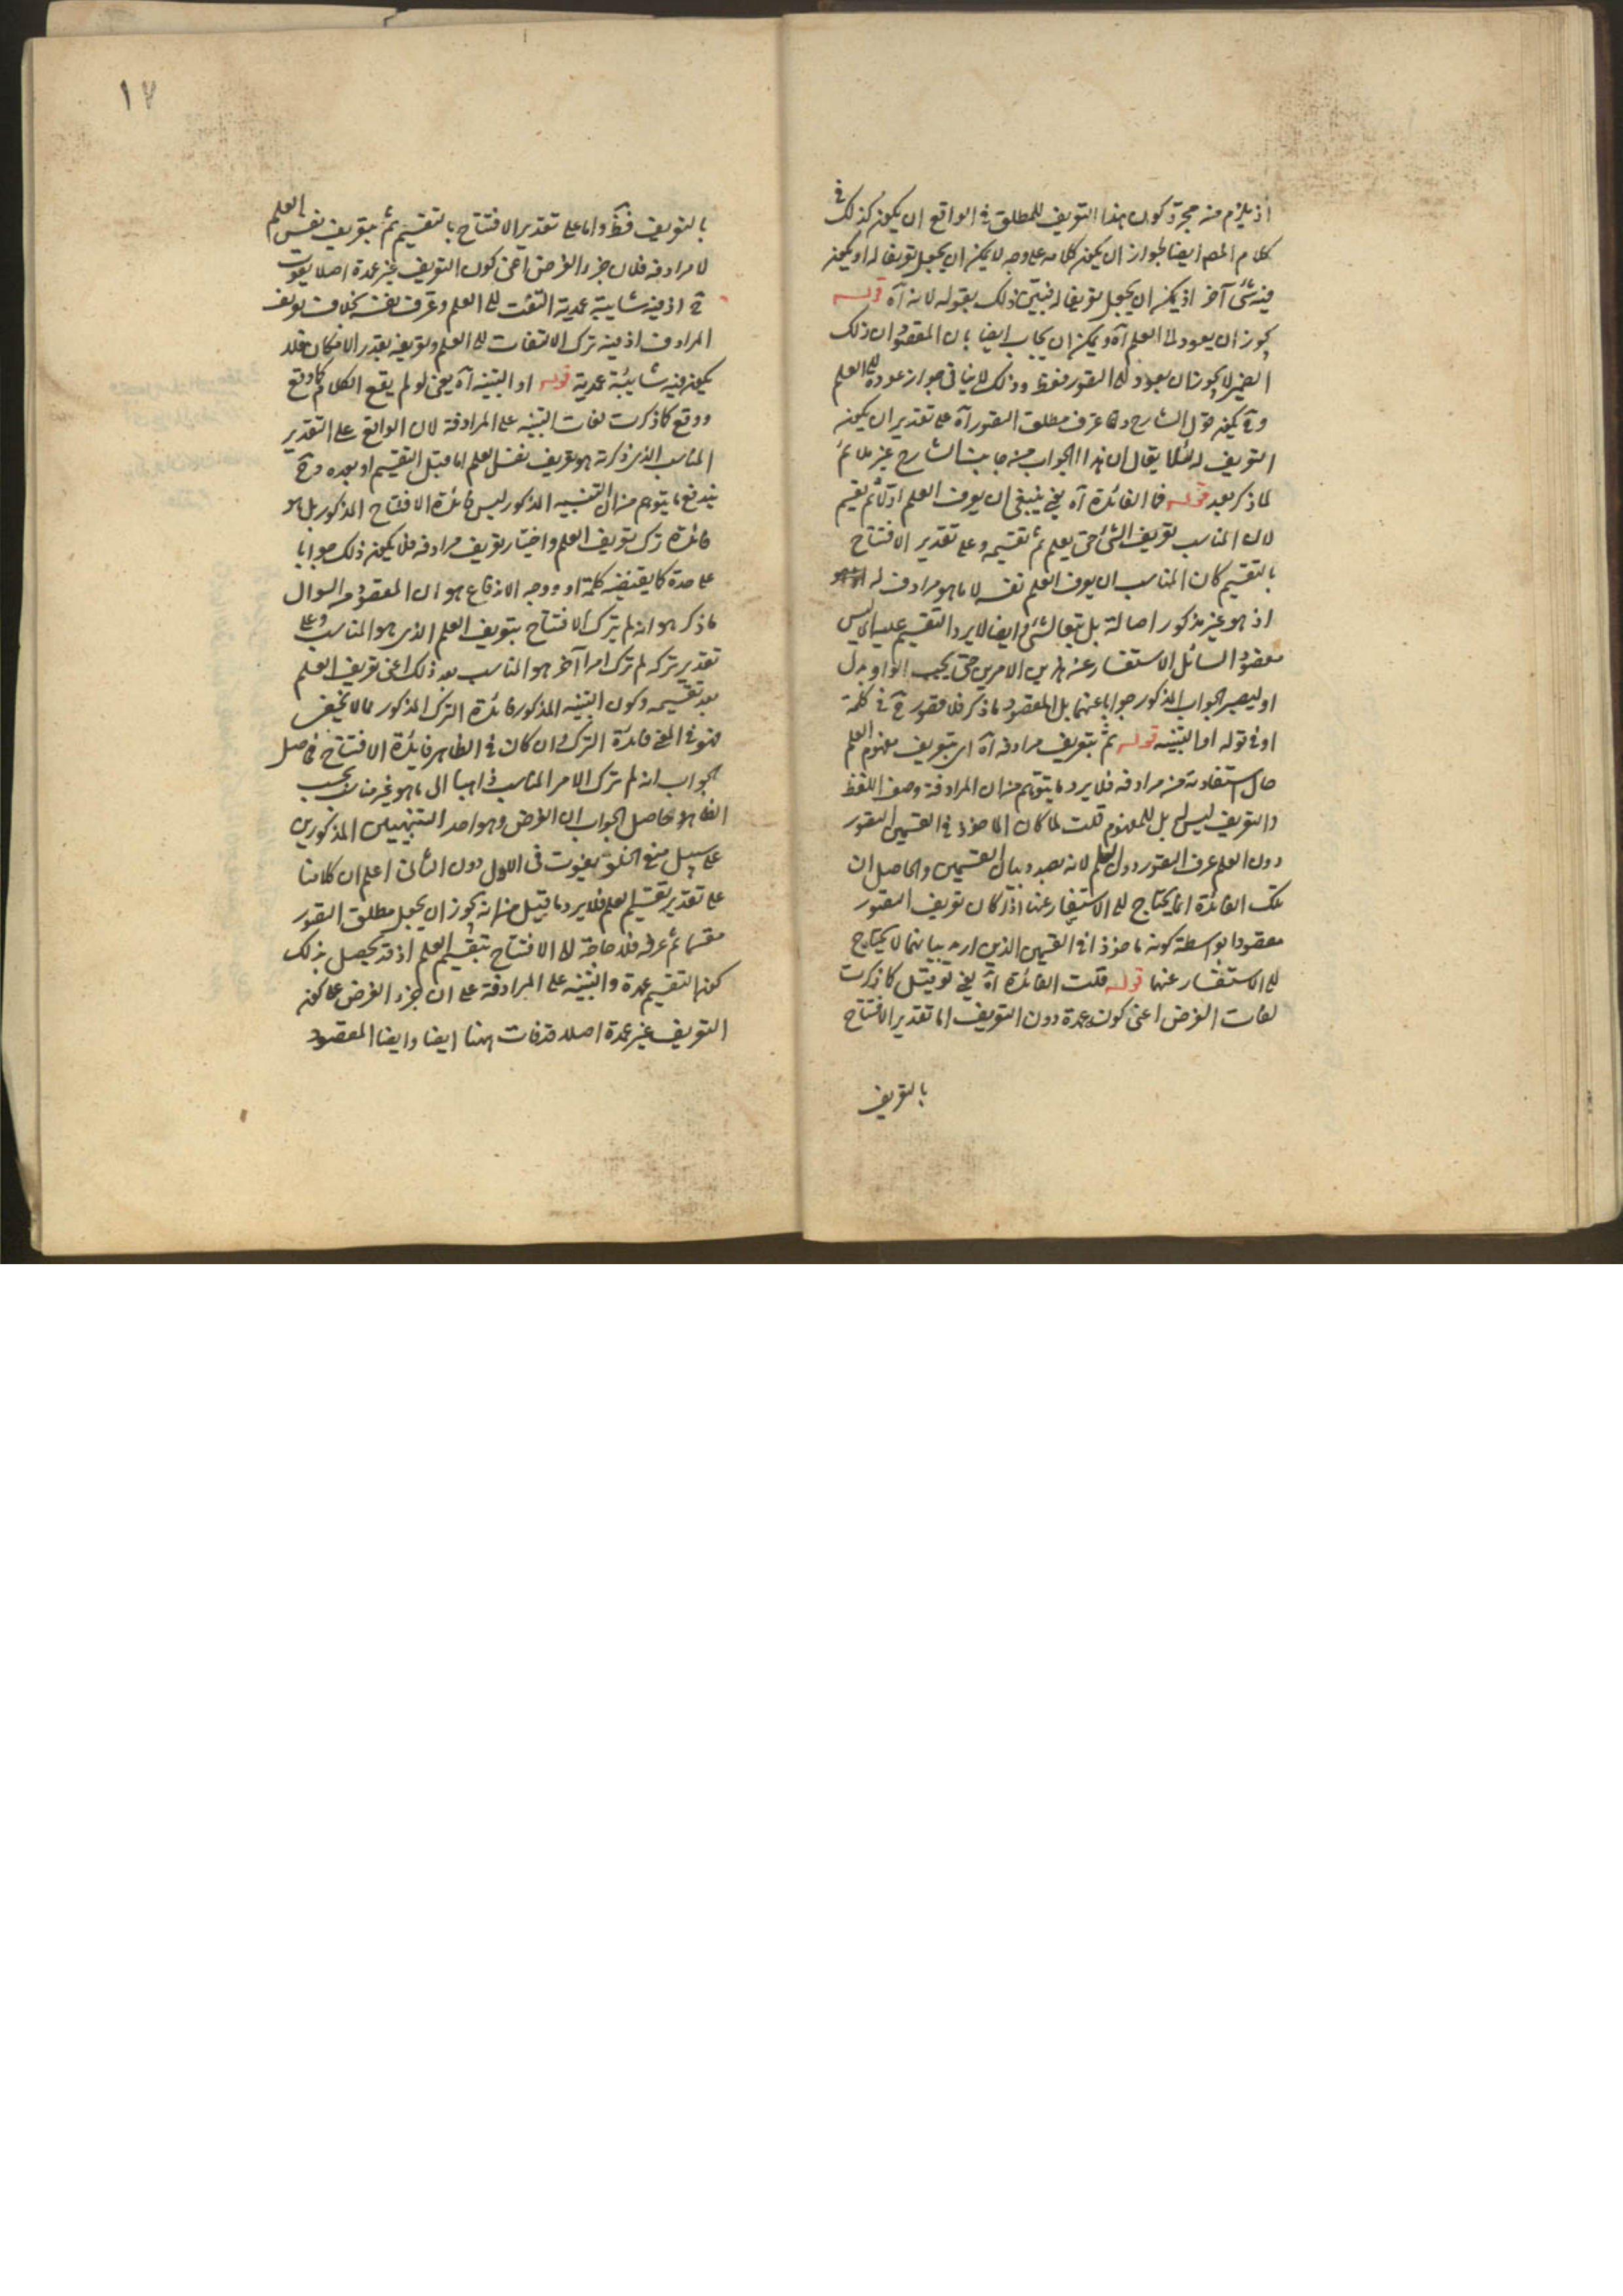 اذ يلزم منه مجرد كون هذا التعريف للمطلق في الواقع ان يكون كذلك في
كلام المصـ ايضا لجواز ان يكون كلامه على وجه لا يمكن ان يجعل تعريفا له او يكون
فيه شئ آخر اذ يمكن ان يجعل تعريفا له فبين ذلك بقوله لانه آه قوله
يجوز ان يعود الى العلم آه ويمكن ان يجاب ايضا بان المقصود ان ذلك
الضمير لا يجوز ان يعود الى التصور فقط وذلك لا ينافي جواز عوده الى العلم
وح يكون قول الشارح وانما عرف مطلق التصور آه على تقدير ان يكون
التعريف له لئلا يقال ان هذا الجواب من جانب الشارح غير ملائم
لما ذكر بعد قوله فما الفائدة آه يعني ينبغي ان يعرف العلم اولا ثم تقسيم
لان المناسب تعريف الشئ حتى يعلم ثم تقسيمه وعلى تقدير الافتتاح
بالتقسيم كان المناسب ان يعرف العلم نفسه لا ما هو مرادف له
اذ هو غير مذكور اصالة بل تبعا لشئ وايضا لا يرد التقسيم عليه اي ليس
مقصود السائل الاستفسار عن هذين الامرين حتى يجب الواو بدل
او ليصير الجواب المذكور جوابا عنهما بل المقصود ما ذكر فلا قصور ح في كلمة
او في قوله او التنبيه قوله ثم بتعريف مرادفه آه اي بتعريف مفهوم العلم
حال استفادته من مرادفه فلا يرد ما يتوهم من ان المرادفة وصف اللفظ
والتعريف ليس له بل للمفهوم قلت لما كان المأخوذ في القسمين التصور
دون العلم عرف التصور دون العلم لانه بصدد بيان القسمين والحاصل ان
تلك الفائدة انما يحتاج الى الاستفسار عنها اذا كان تعريف التصور
مقصودا بواسطة كونه مأخوذا في القسمين الذين اريد بيانهما لا يحتاج
الى الاستفسار عنها قوله قلت الفائدة آه يعني لو قيل كما ذكرت
لفات الغرض اعني كونه عمدة دون التعريف اما تقدير الافتتاح
بالتعريف
١٧
بالتعريف فظ واما على تقدير الافتتاح بالتقسيم ثم بتعريف نفس العلم
لا مرادفه فلان جزء الغرض اعني كون التعريف غير عمدة اصلا يفوت
ح اذ فيه شائبة عمدية التفت الى العلم وعرف نفسه بخلاف تعريف
المرادف اذ فيه ترك الالتفات الى العلم وتعريفه بقدر الامكان فلا
يكون فيه شائبة عمدية قوله او التنبيه آه يعني لو لم يقع الكلام كما وقع
ووقع كما ذكرت لفات التنبيه على المرادفة لان الواقع على التقدير
المناسب الذي ذكرته هو تعريف نفس العلم اما قبل التقسيم او بعده وح
يندفع ما يتوهم من ان التنبيه المذكور ليس فائدة الافتتاح المذكور بل هو
فائدة ترك تعريف العلم واختيار تعريف مرادفه فلا يكون ذلك جوابا
على حدة كما يقتضيه كلمة او ووجه الاندفاع هو ان المقصود من السوال
ما ذكر هو انه لم يترك الافتتاح بتعريف العلم الذي هو المناسب وعلى
تقدير تركه لم ترك امرا آخر هو المناسب بعد ذلك اعني تعريف العلم
بعد تقسيمه وكون التنبيه المذكور فائدة الترك المذكور مما لا يخفى
فهو في المعنى فائدة الترك وان كان في الظاهر فايدة الافتتاح فحاصل
الجواب انه لم ترك الامر المناسب ذاهبا الى ما هو غير مناسب بحسب
الظاهر وحاصل الجواب ان الغرض وهو احد التنبيهين المذكورين
على سبيل منع الخلو يفوت في الاول دون الثاني اعلم ان كلامنا
على تقدير تقسيم العلم فلا يرد ما قيل من انه يجوز ان يجعل مطلق التصور
مقسما ثم عرفه فلا حاجة الى الافتتاح بتقسيم العلم اذ قد يحصل بذلك
كون التقسيم عمدة والتنبيه على المرادفة على ان جزء الغرض على كون
التعريف غير عمدة اصلا قد فات ههنا ايضا وايضا المقصود